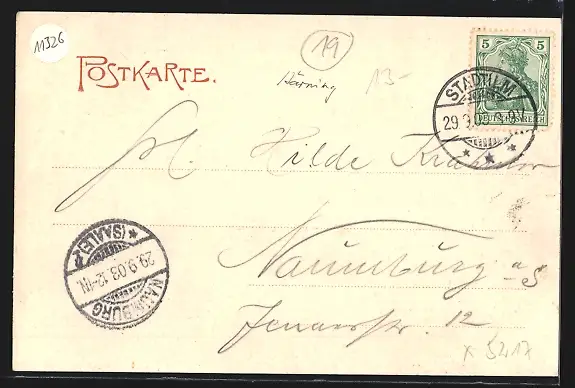 11326
19
5
POSTKARTE.
Härning
13-
STADTILM
29.9.03
DEUTSCHES REICH
Frl. Hilde
Naumburg a/S
NAUMBURG (SAALE) 2
29.9.03. 12-1N.
Jenaerstr. 12
x 5217